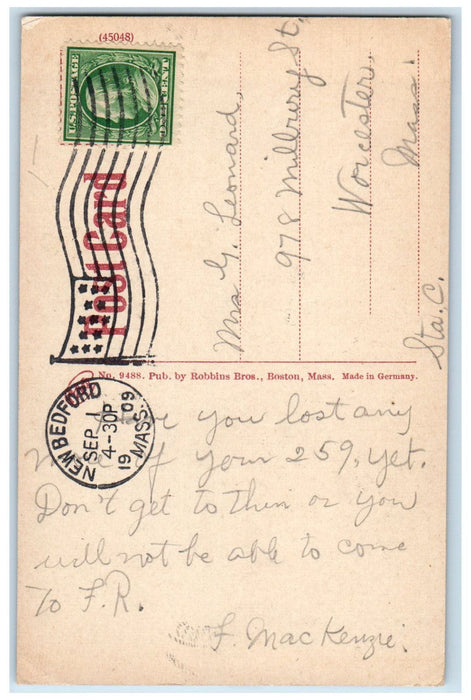 (45048)
U.S. POSTAGE
Post Card
Mrs G. Leonard,
978 Millbury St,
Worcester,
Mass.
Sta. C.
No. 9488. Pub. by Robbins Bros., Boston, Mass. Made in Germany.
NEW BEDFORD
MASS.
SEP 1
4-30P
19 09
you lost any
of your 259, yet.
Don't get to thin or you
will not be able to come
to F.R.
F. MacKenzie.